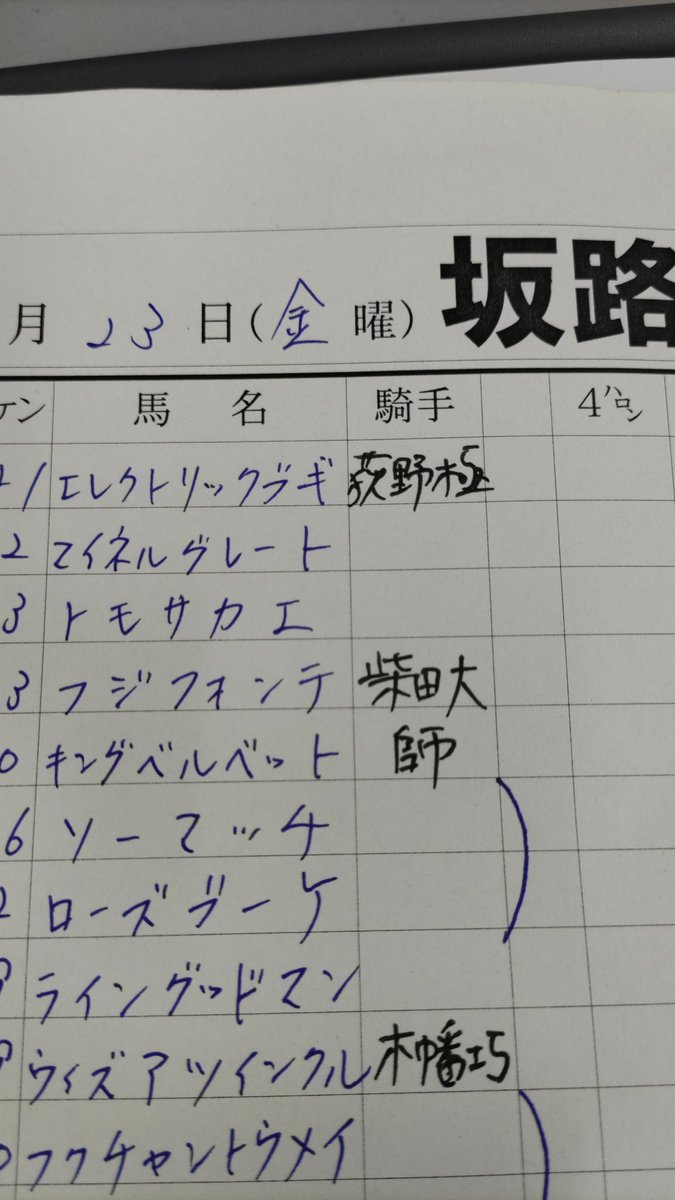 月 23 日(金 曜) 坂路
ケン 馬 名 騎手 4ハロン
21 エレクトリックブギ 荻野極
2 マイネルグレート
3 トモサカエ
3 フジフォンテ 柴田大
0 キングベルベット 師
6 ソーマッチ
2 ローズブーケ
9 ライングッドマン
9 ウィズアツインクル 木幡巧
0 フクチャントウメイ